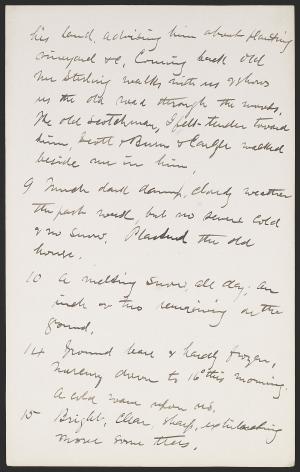 his land, advising him about planting
vineyard &c, Coming back Old
Mr Sterling walks with us & shows
us the old road through the woods.
The old Scotchman, I felt tender toward
him, Scott & Burns & Carlyle walked
beside me in him.
9 Much dark damp, cloudy weather
the past week, but no severe cold
& no snow. Plastered the old
house.
10 A melting snow, all day; an
inch or two remaining on the
ground.
14 Ground bare & hardly frozen,
Mercury down to 16° this morning.
A cold wave upon us.
15 Bright, clear, sharp,
some trees.